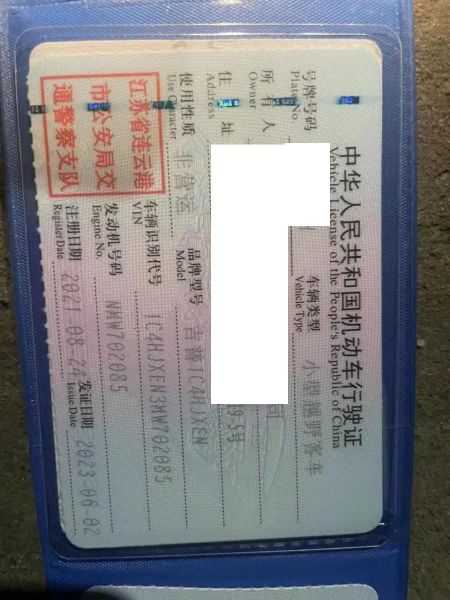 中华人民共和国机动车行驶证
Vehicle License of the People's Republic of China
号牌号码
Plate No.
车辆类型 小型越野客车
Vehicle Type
所有人 司
Owner
住址 19-5号
Address
使用性质 非营运
Use Character
品牌型号 吉普1C4HJXEN
Model
江苏省连云港
市公安局交
通警察支队
车辆识别代号 1C4HJXEN3MW702085
VIN
发动机号码 NMW702085
Engine No.
注册日期 2021-08-24 发证日期 2023-06-02
Register Date Issue Date